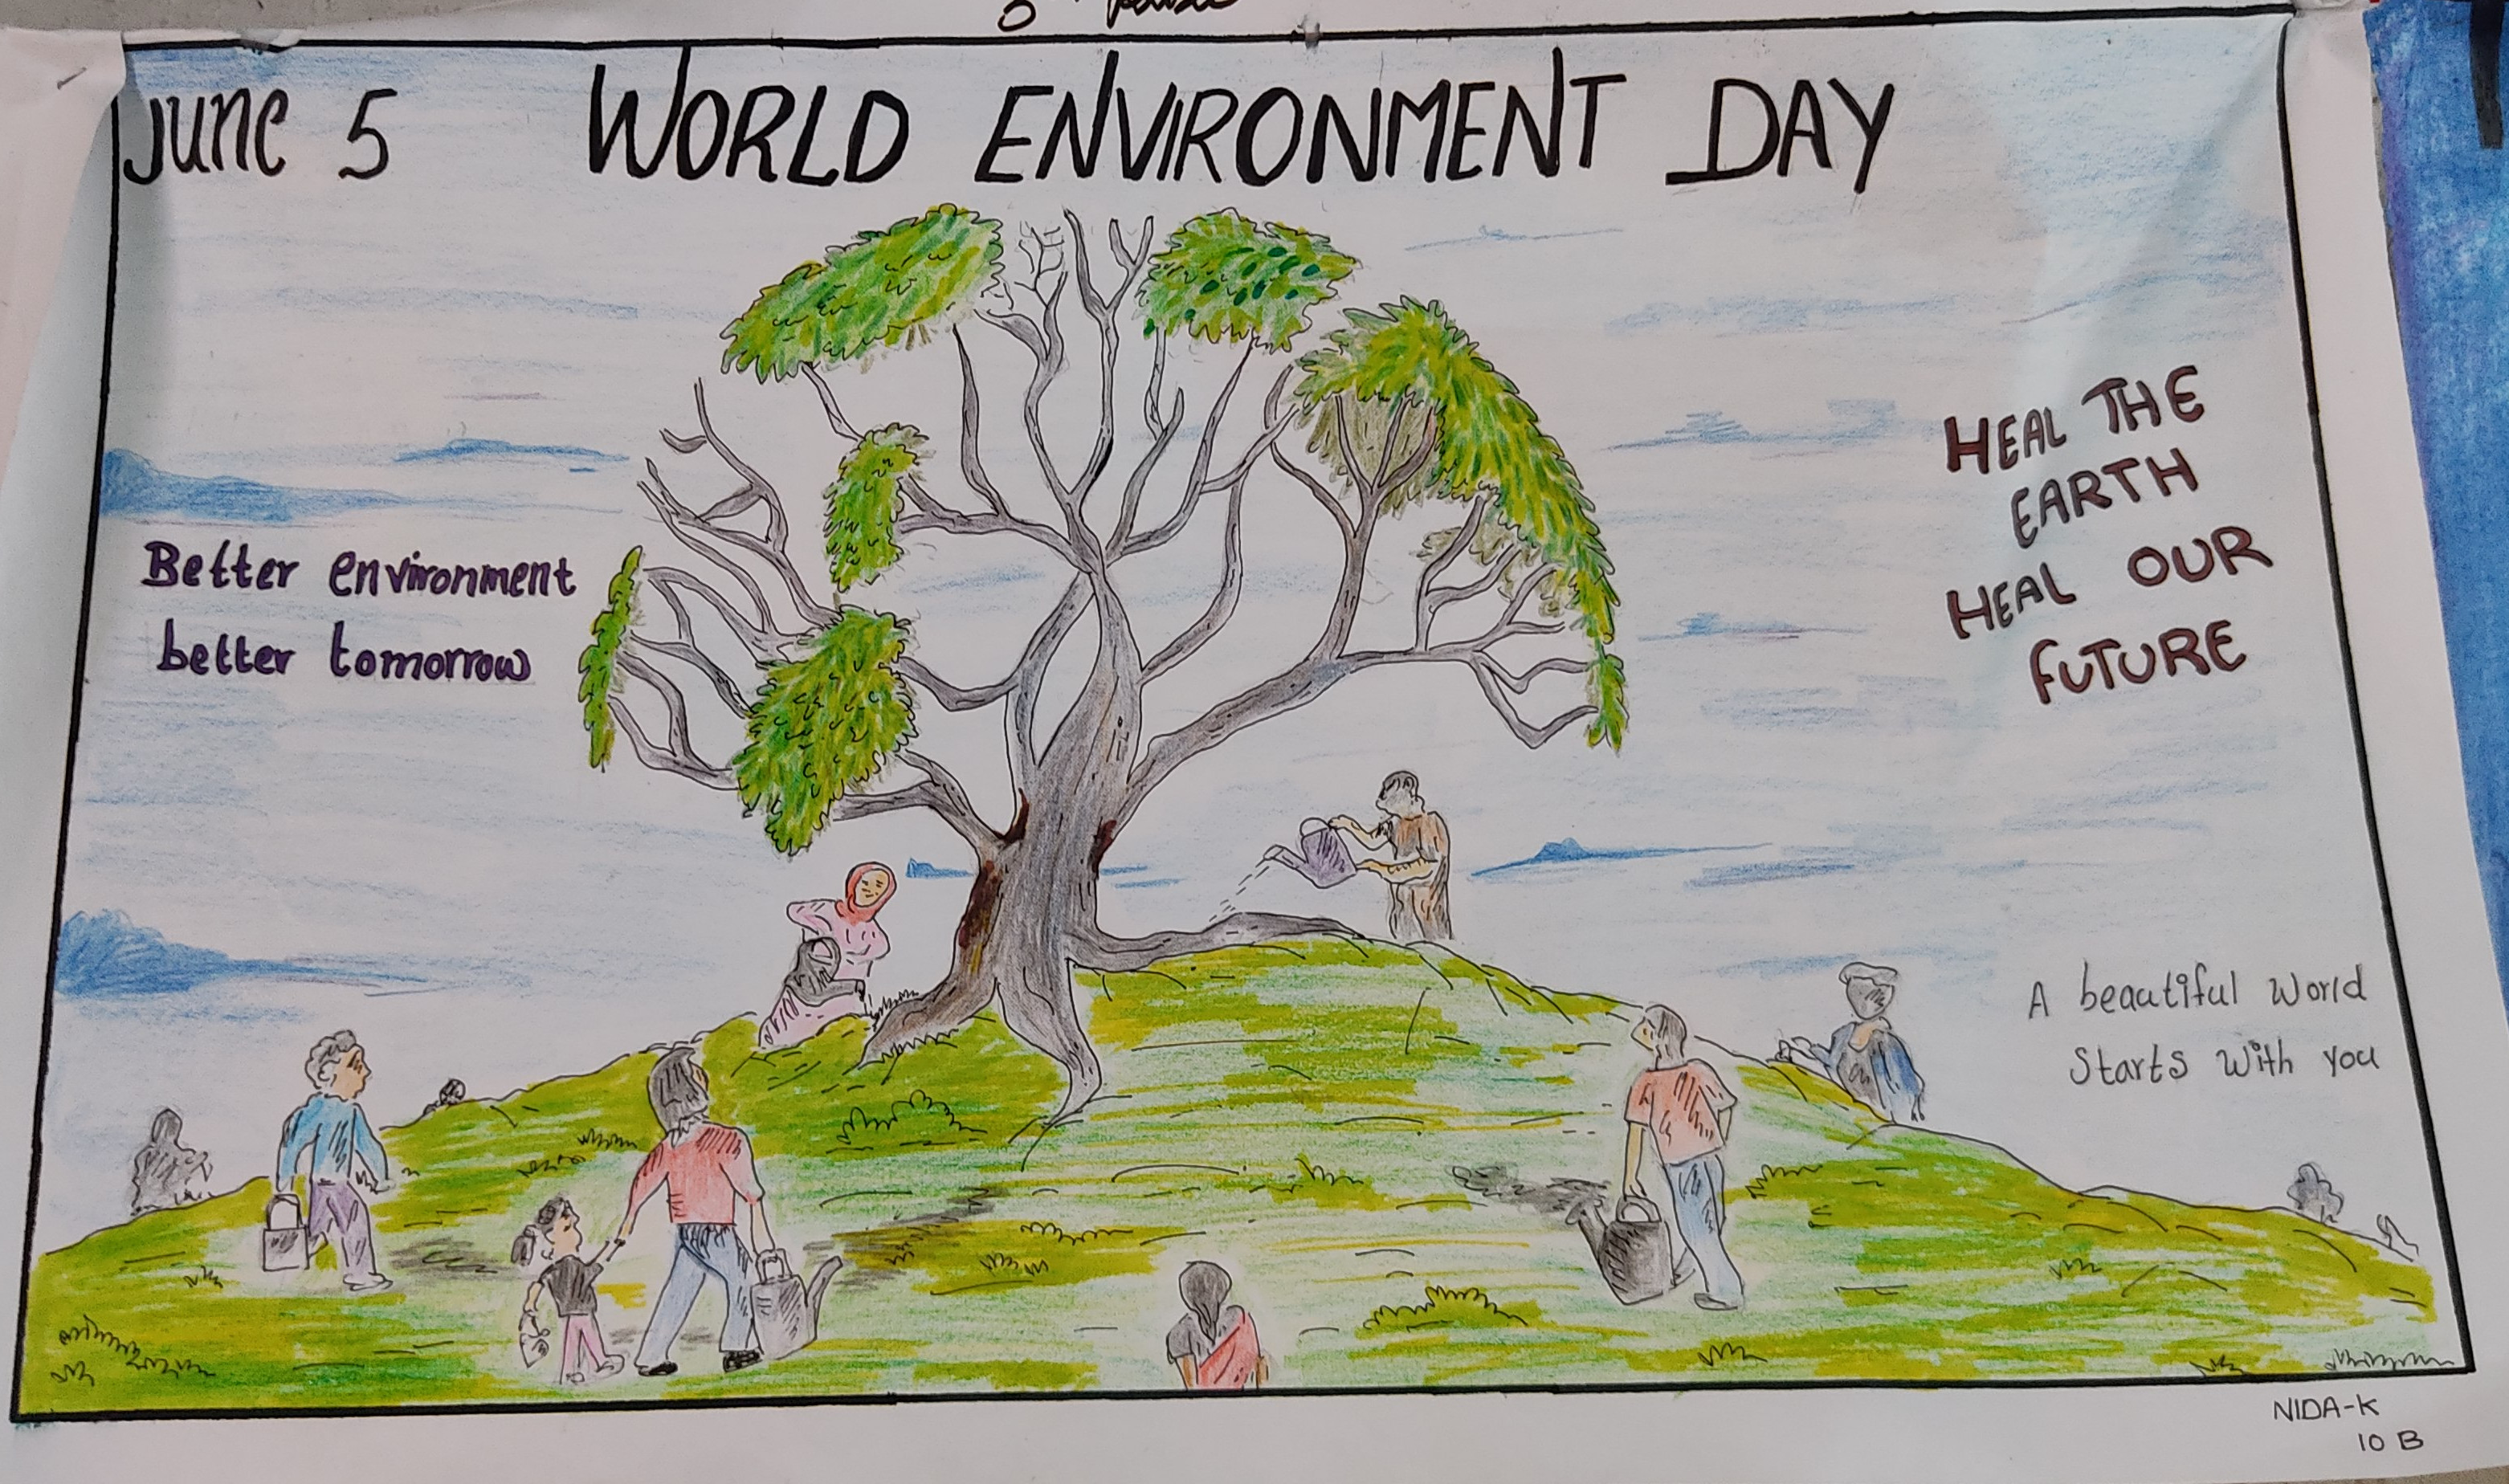 June 5 WORLD ENVIRONMENT DAY
Better environment
better tomorrow
HEAL THE
EARTH
HEAL OUR
FUTURE
A beautiful World
Starts With you
NIDA-K
10 B